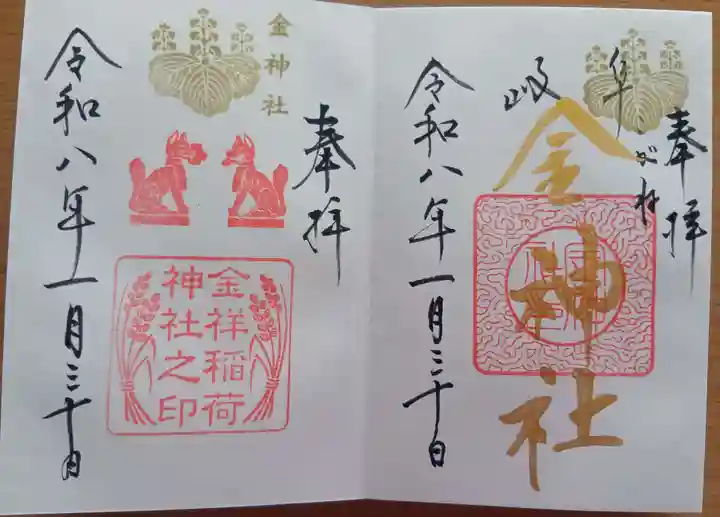 奉拝
岐阜
こがね
金神社
令和八年一月三十日
金神社
奉拝
金祥稲荷
神社之印
令和八年一月三十日